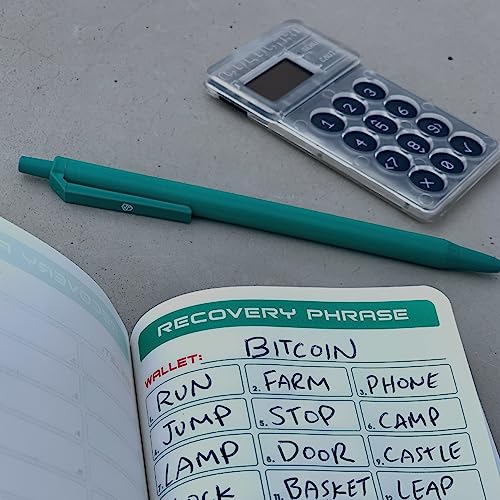 1 2 3
4 5 6
7 8 9
X 0 ✓
RECOVERY PHRASE
WALLET: BITCOIN
RUN 2. FARM 3. PHONE
JUMP 5. STOP 6. CAMP
LAMP 8. DOOR 9. CASTLE
BASKET 12. LEAP